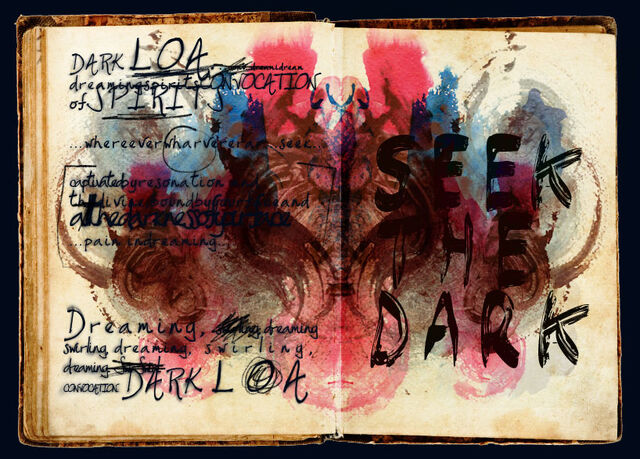 DARK LOA.
dreamingspirits CONVOCATION
of SPIRITS
...whereeverwharvererar...seek...
captivatedbyresonation and
thedivineboundbygeerfireand
atthedarknessofyourface
...pain indreaming...
Dreaming, dreaming
swirling, dreaming, swirling,
dreaming
CONVOCATION DARK LOA
SEEK
THE
DARK